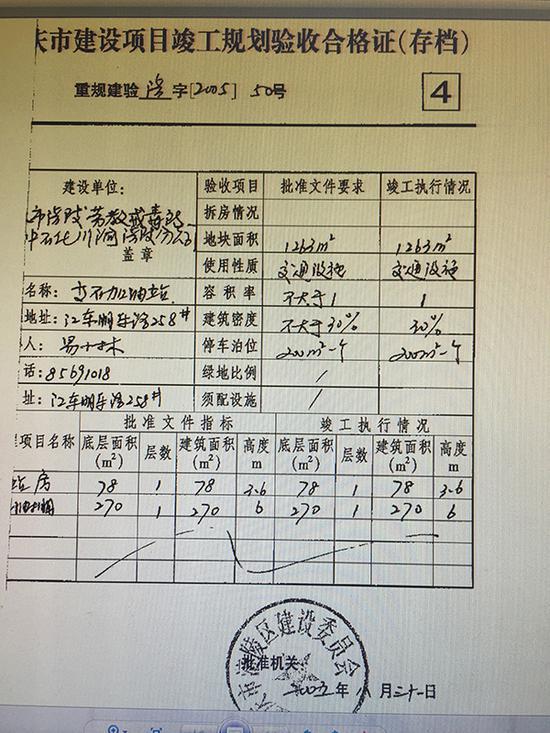 庆市建设项目竣工规划验收合格证(存档)
重规建验 涪 字[2005] 50号
4
建设单位: 验收项目 批准文件要求 竣工执行情况
拆房情况
盖章
地块面积 1263m² 1263m²
使用性质 交通设施 交通设施
名称: 加油站 容积率 不大于1 1
地址: 江东 路258# 建筑密度 不大于30% 30%
人: 易 林 停车泊位 200m²一个 200m²一个
话: 85691018 绿地比例 /
址: 江东 路258# 须配设施 /
批准文件指标 竣工执行情况
项目名称 底层面积(m²) 层数 建筑面积(m²) 高度m 底层面积(m²) 层数 建筑面积(m²) 高度m
站房 78 1 78 3.6 78 1 78 3.6
270 1 270 6 270 1 270 6
市涪陵区建设委员会
批准机关
2005年 八月三十一日